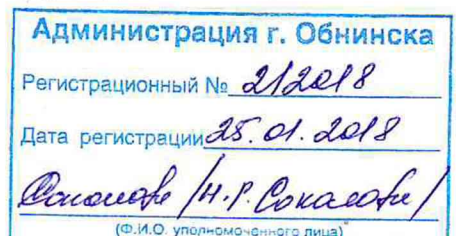 Администрация г. Обнинска
Регистрационный № 2/2018
Дата регистрации 25.01.2018
/Н.Р. Соколова/
(Ф.И.О. уполномоченного лица)